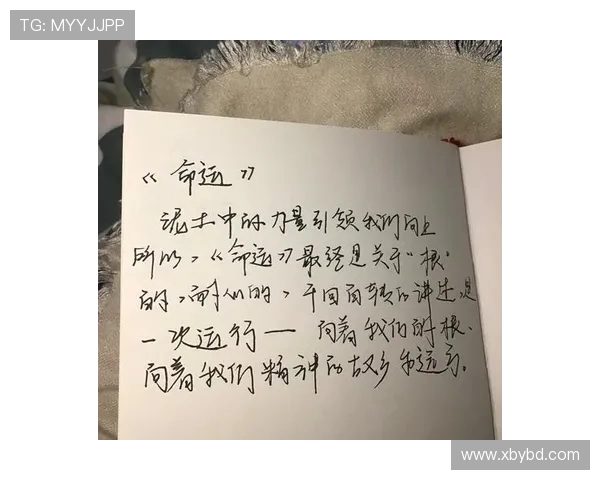 TG: MYYJJPP
《命运》
泥土中的力量引领我们向上
所以，《命运》最终是关于“根”
的，耐人的，千回百转的讲述，是
一次运行 — 向着我们的根、
向着我们精神的故乡的运行。
www.xbybd.com